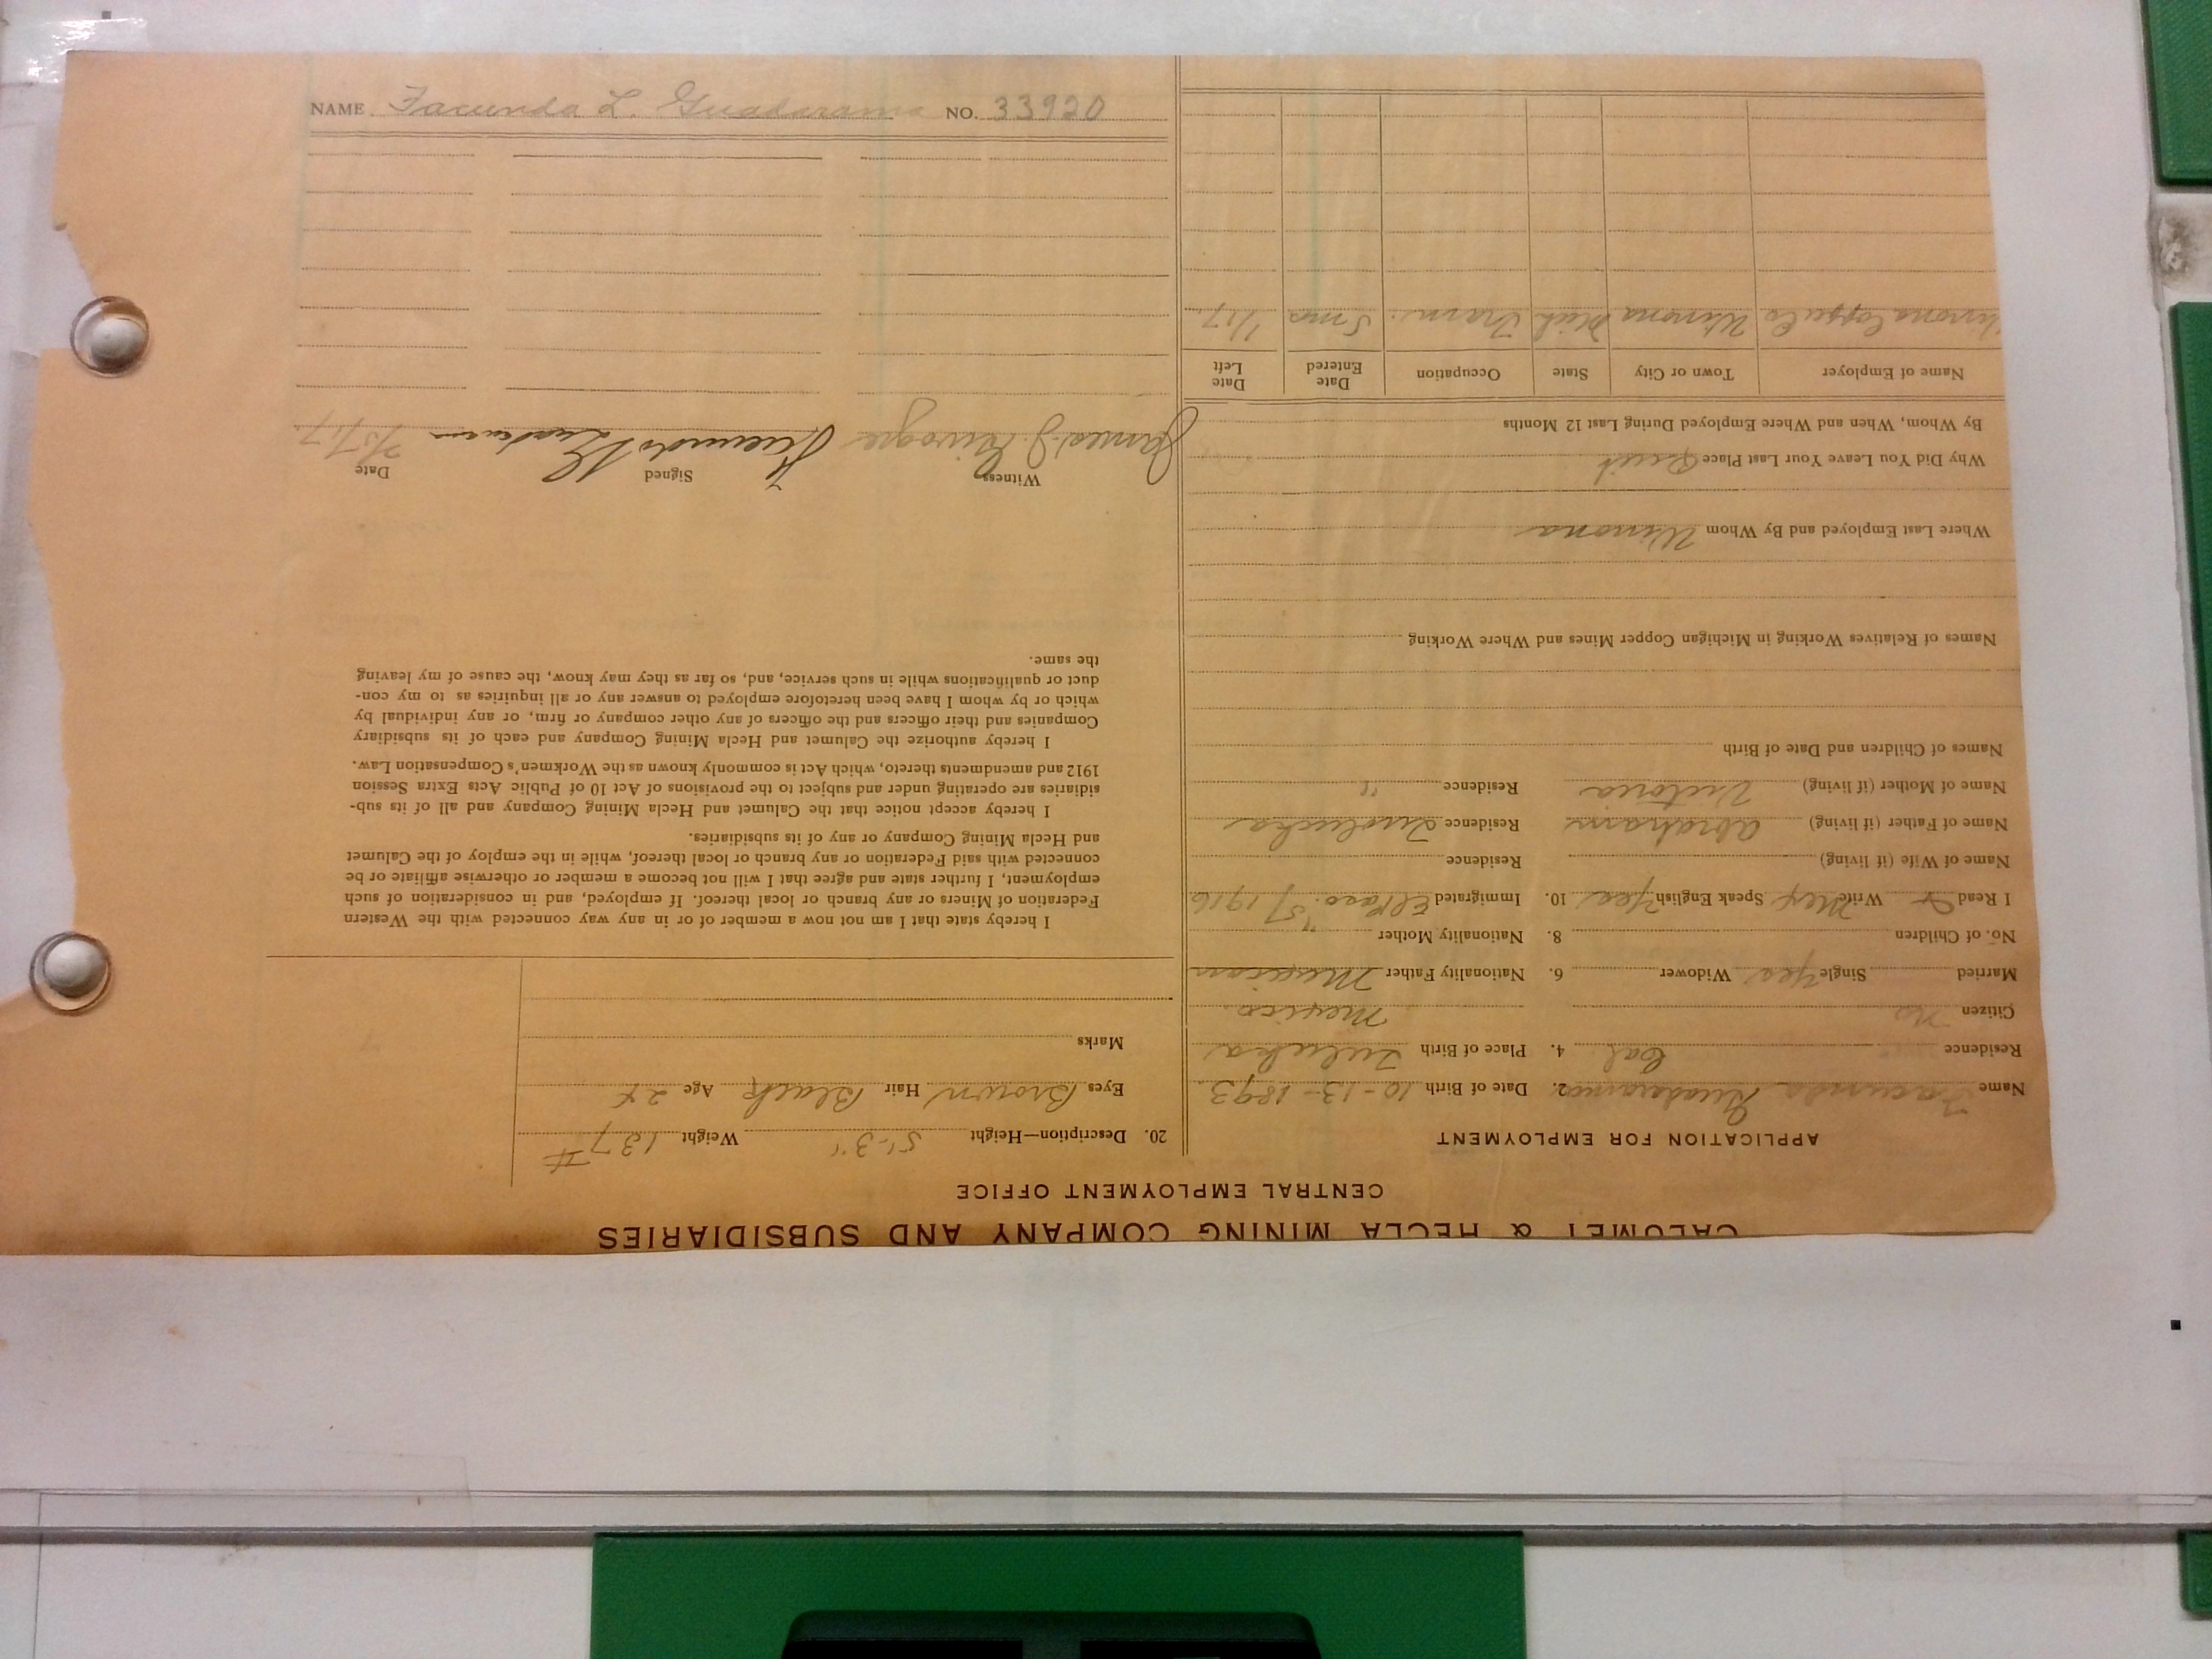 CALUMET & HECLA MINING COMPANY AND SUBSIDIARIES
CENTRAL EMPLOYMENT OFFICE
APPLICATION FOR EMPLOYMENT
Name Facunda Guaderama 2. Date of Birth 10-13-1893
Residence Cal 4. Place of Birth Tulucha
Citizen No Mexico.
Married Single Yes Widower 6. Nationality Father Mexican
No. of Children 8. Nationality Mother "
I Read & Write Mex Speak English Yes 10. Immigrated El Paso 5/1916
Name of Wife (if living) Residence
Name of Father (if living) Abraham Residence
Name of Mother (if living) Victoria Residence "
Names of Children and Date of Birth
Names of Relatives Working in Michigan Copper Mines and Where Working
Where Last Employed and By Whom Winona
Why Did You Leave Your Last Place Quit
By Whom, When and Where Employed During Last 12 Months
Name of Employer Town or City State Occupation Date Entered Date Left
Winona Copper Co Winona Mich Tram. 5 mos 1/17.
20. Description—Height 5'-3" Weight 137#
Eyes Brown Hair Black Age 24
Marks
I hereby state that I am not now a member of or in any way connected with the Western
Federation of Miners or any branch or local thereof. If employed, and in consideration of such
employment, I further state and agree that I will not become a member or otherwise affiliate or be
connected with said Federation or any branch or local thereof, while in the employ of the Calumet
and Hecla Mining Company or any of its subsidiaries.
I hereby accept notice that the Calumet and Hecla Mining Company and all of its sub-
sidiaries are operating under and subject to the provisions of Act 10 of Public Acts Extra Session
1912 and amendments thereto, which Act is commonly known as the Workmen's Compensation Law.
I hereby authorize the Calumet and Hecla Mining Company and each of its subsidiary
Companies and their officers and the officers of any other company or firm, or any individual by
which or by whom I have been heretofore employed to answer any or all inquiries as to my con-
duct or qualifications while in such service, and, so far as they may know, the cause of my leaving
the same.
Witness Signed Date
James J. 2/5/17.
NAME Facunda L. Guaderama NO. 33920